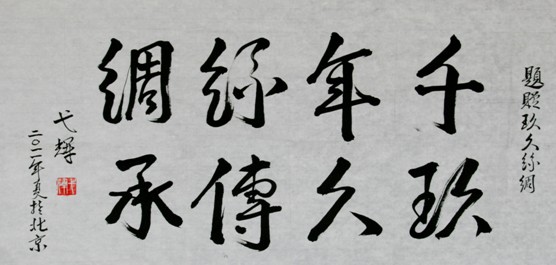 題贈玖久丝綢
千玖
年久
絲傳
綢承
弋輝
二〇一一年夏於北京